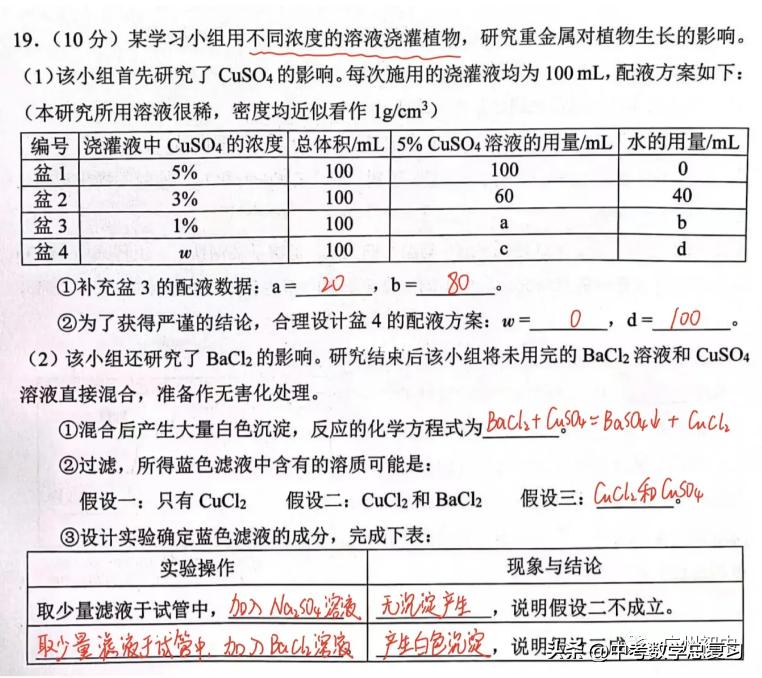 19.（10 分）某学习小组用不同浓度的溶液浇灌植物，研究重金属对植物生长的影响。
（1）该小组首先研究了 CuSO₄ 的影响。每次施用的浇灌液均为 100 mL，配液方案如下：
（本研究所用溶液很稀，密度均近似看作 1g/cm³）
编号 浇灌液中 CuSO₄ 的浓度 总体积/mL 5% CuSO₄ 溶液的用量/mL 水的用量/mL
盆 1 5% 100 100 0
盆 2 3% 100 60 40
盆 3 1% 100 a b
盆 4 w 100 c d
①补充盆 3 的配液数据：a = 20 ，b = 80 。
②为了获得严谨的结论，合理设计盆 4 的配液方案：w = 0 ，d = 100 。
（2）该小组还研究了 BaCl₂ 的影响。研究结束后该小组将未用完的 BaCl₂ 溶液和 CuSO₄
溶液直接混合，准备作无害化处理。
①混合后产生大量白色沉淀，反应的化学方程式为 BaCl₂ + CuSO₄ = BaSO₄↓ + CuCl₂ 。
②过滤，所得蓝色滤液中含有的溶质可能是：
假设一：只有 CuCl₂ 假设二：CuCl₂ 和 BaCl₂ 假设三：CuCl₂ 和 CuSO₄ 。
③设计实验确定蓝色滤液的成分，完成下表：
实验操作 现象与结论
取少量滤液于试管中，加入 Na₂SO₄ 溶液 无沉淀产生 ，说明假设二不成立。
取少量滤液于试管中，加入 BaCl₂ 溶液 产生白色沉淀 ，说明
头条 @中考数学总复习